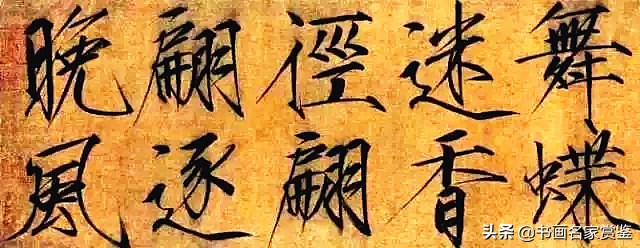 舞蝶
迷香
徑翩
翩逐
晚風
头条 @书画名家赏鉴